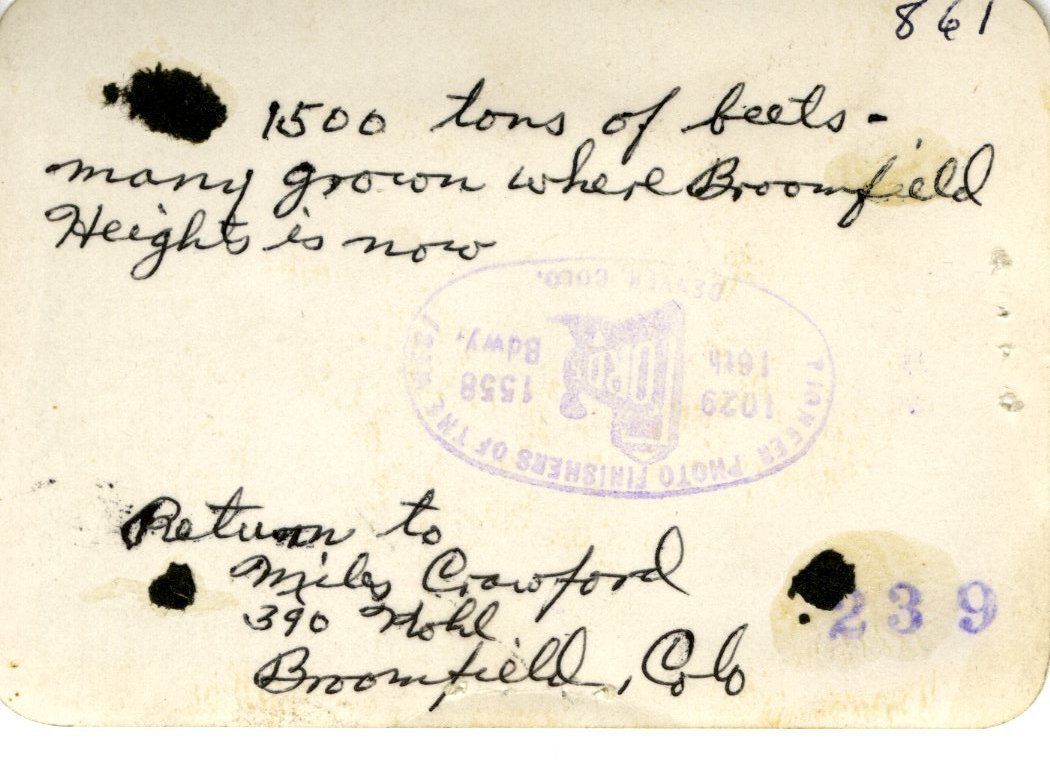 861
1500 tons of beets-
many grown where Broomfield
Heights is now
DENVER, COLO.
1029
16th
1558
Bdwy.
PIONEER PHOTO FINISHERS OF THE
Return to
Miles Crawford
390 Kohl
Broomfield, Colo
239